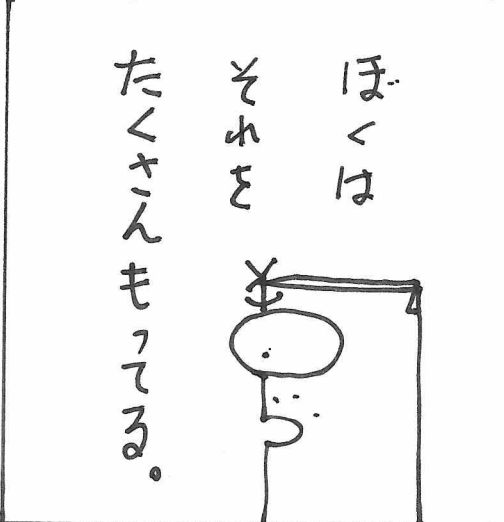 ぼくは
それを
たくさんもってる。